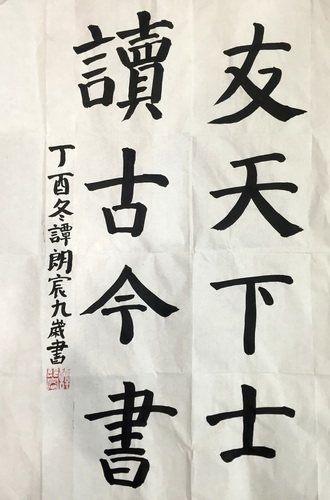 友天下士
讀古今書
丁酉冬譚朗宸九歲書